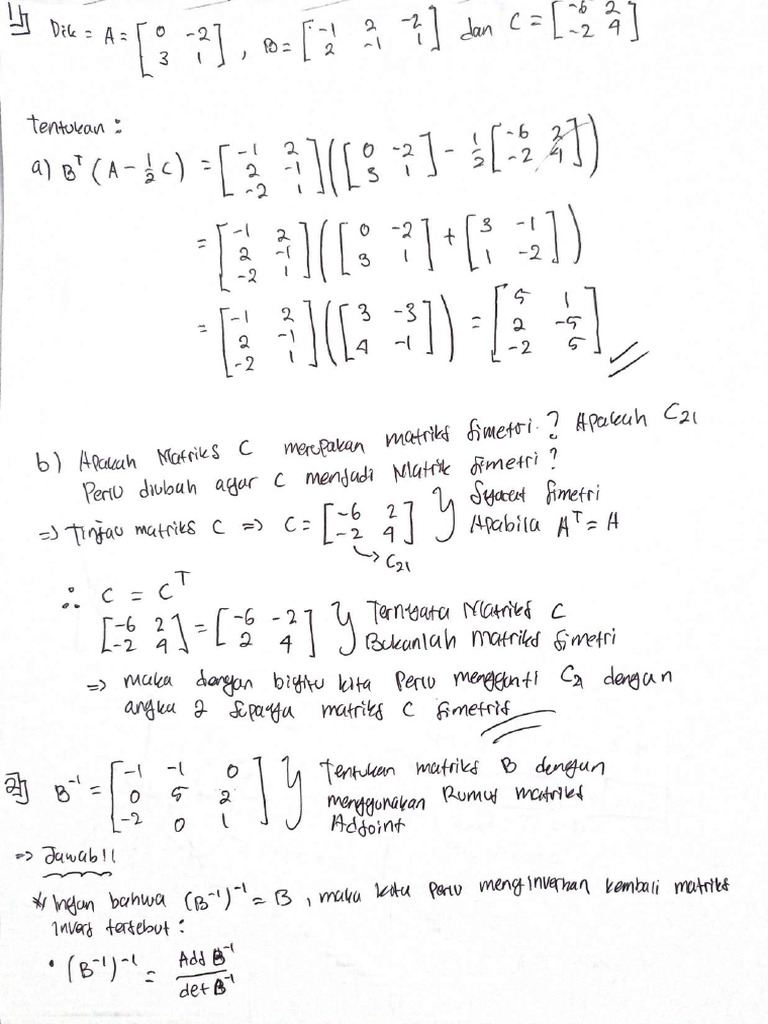 1] Dik = A = [0 -2; 3 1], B = [-1 2 -2; 2 -1 1] dan C = [-6 2; -2 4]
tentukan :
a) Bᵀ (A - 1/2 C) = [-1 2; 2 -1; -2 1] ([0 -2; 3 1] - 1/2 [-6 2; -2 4])
= [-1 2; 2 -1; -2 1] ([0 -2; 3 1] + [3 -1; 1 -2])
= [-1 2; 2 -1; -2 1] ([3 -3; 4 -1]) = [5 1; 2 -5; -2 5]
b) Apakah Matriks C merupakan matriks Simetri ? Apakah C21
Perlu diubah agar C menjadi Matrik Simetri ?
=> Tinjau matriks C => C = [-6 2; -2 4] } Syarat Simetri
Apabila Aᵀ = A
→ C21
∴ C = Cᵀ
[-6 2; -2 4] = [-6 -2; 2 4] } Ternyata Matriks C
Bukanlah matriks Simetri
=> maka dengan bigitu kita Perlu mengganti C21 dengan
angka 2 Supaya matriks C Simetris
2] B⁻¹ = [-1 -1 0; 0 5 2; -2 0 1] } Tentukan matriks B dengan
menggunakan Rumus matriks
Adjoint
=> Jawab!!
* Ingan bahwa (B⁻¹)⁻¹ = B, maka kita Perlu menginverhan kembali matriks
invers tersebut :
• (B⁻¹)⁻¹ = Adj B⁻¹ / det B⁻¹